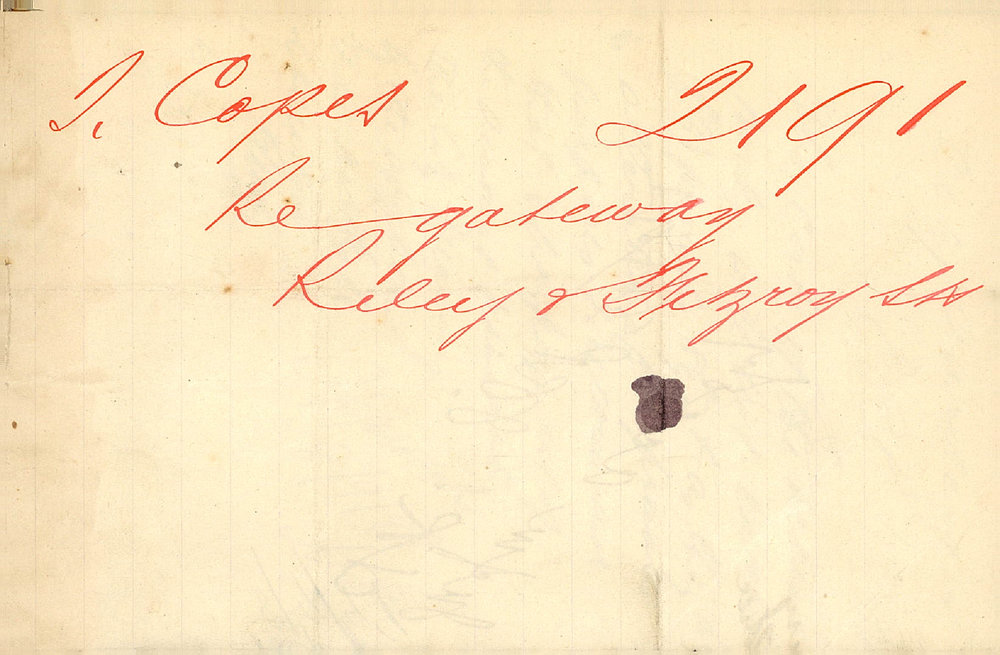 J. Copes 2191
Re gateway
Riley & Fitzroy Sts